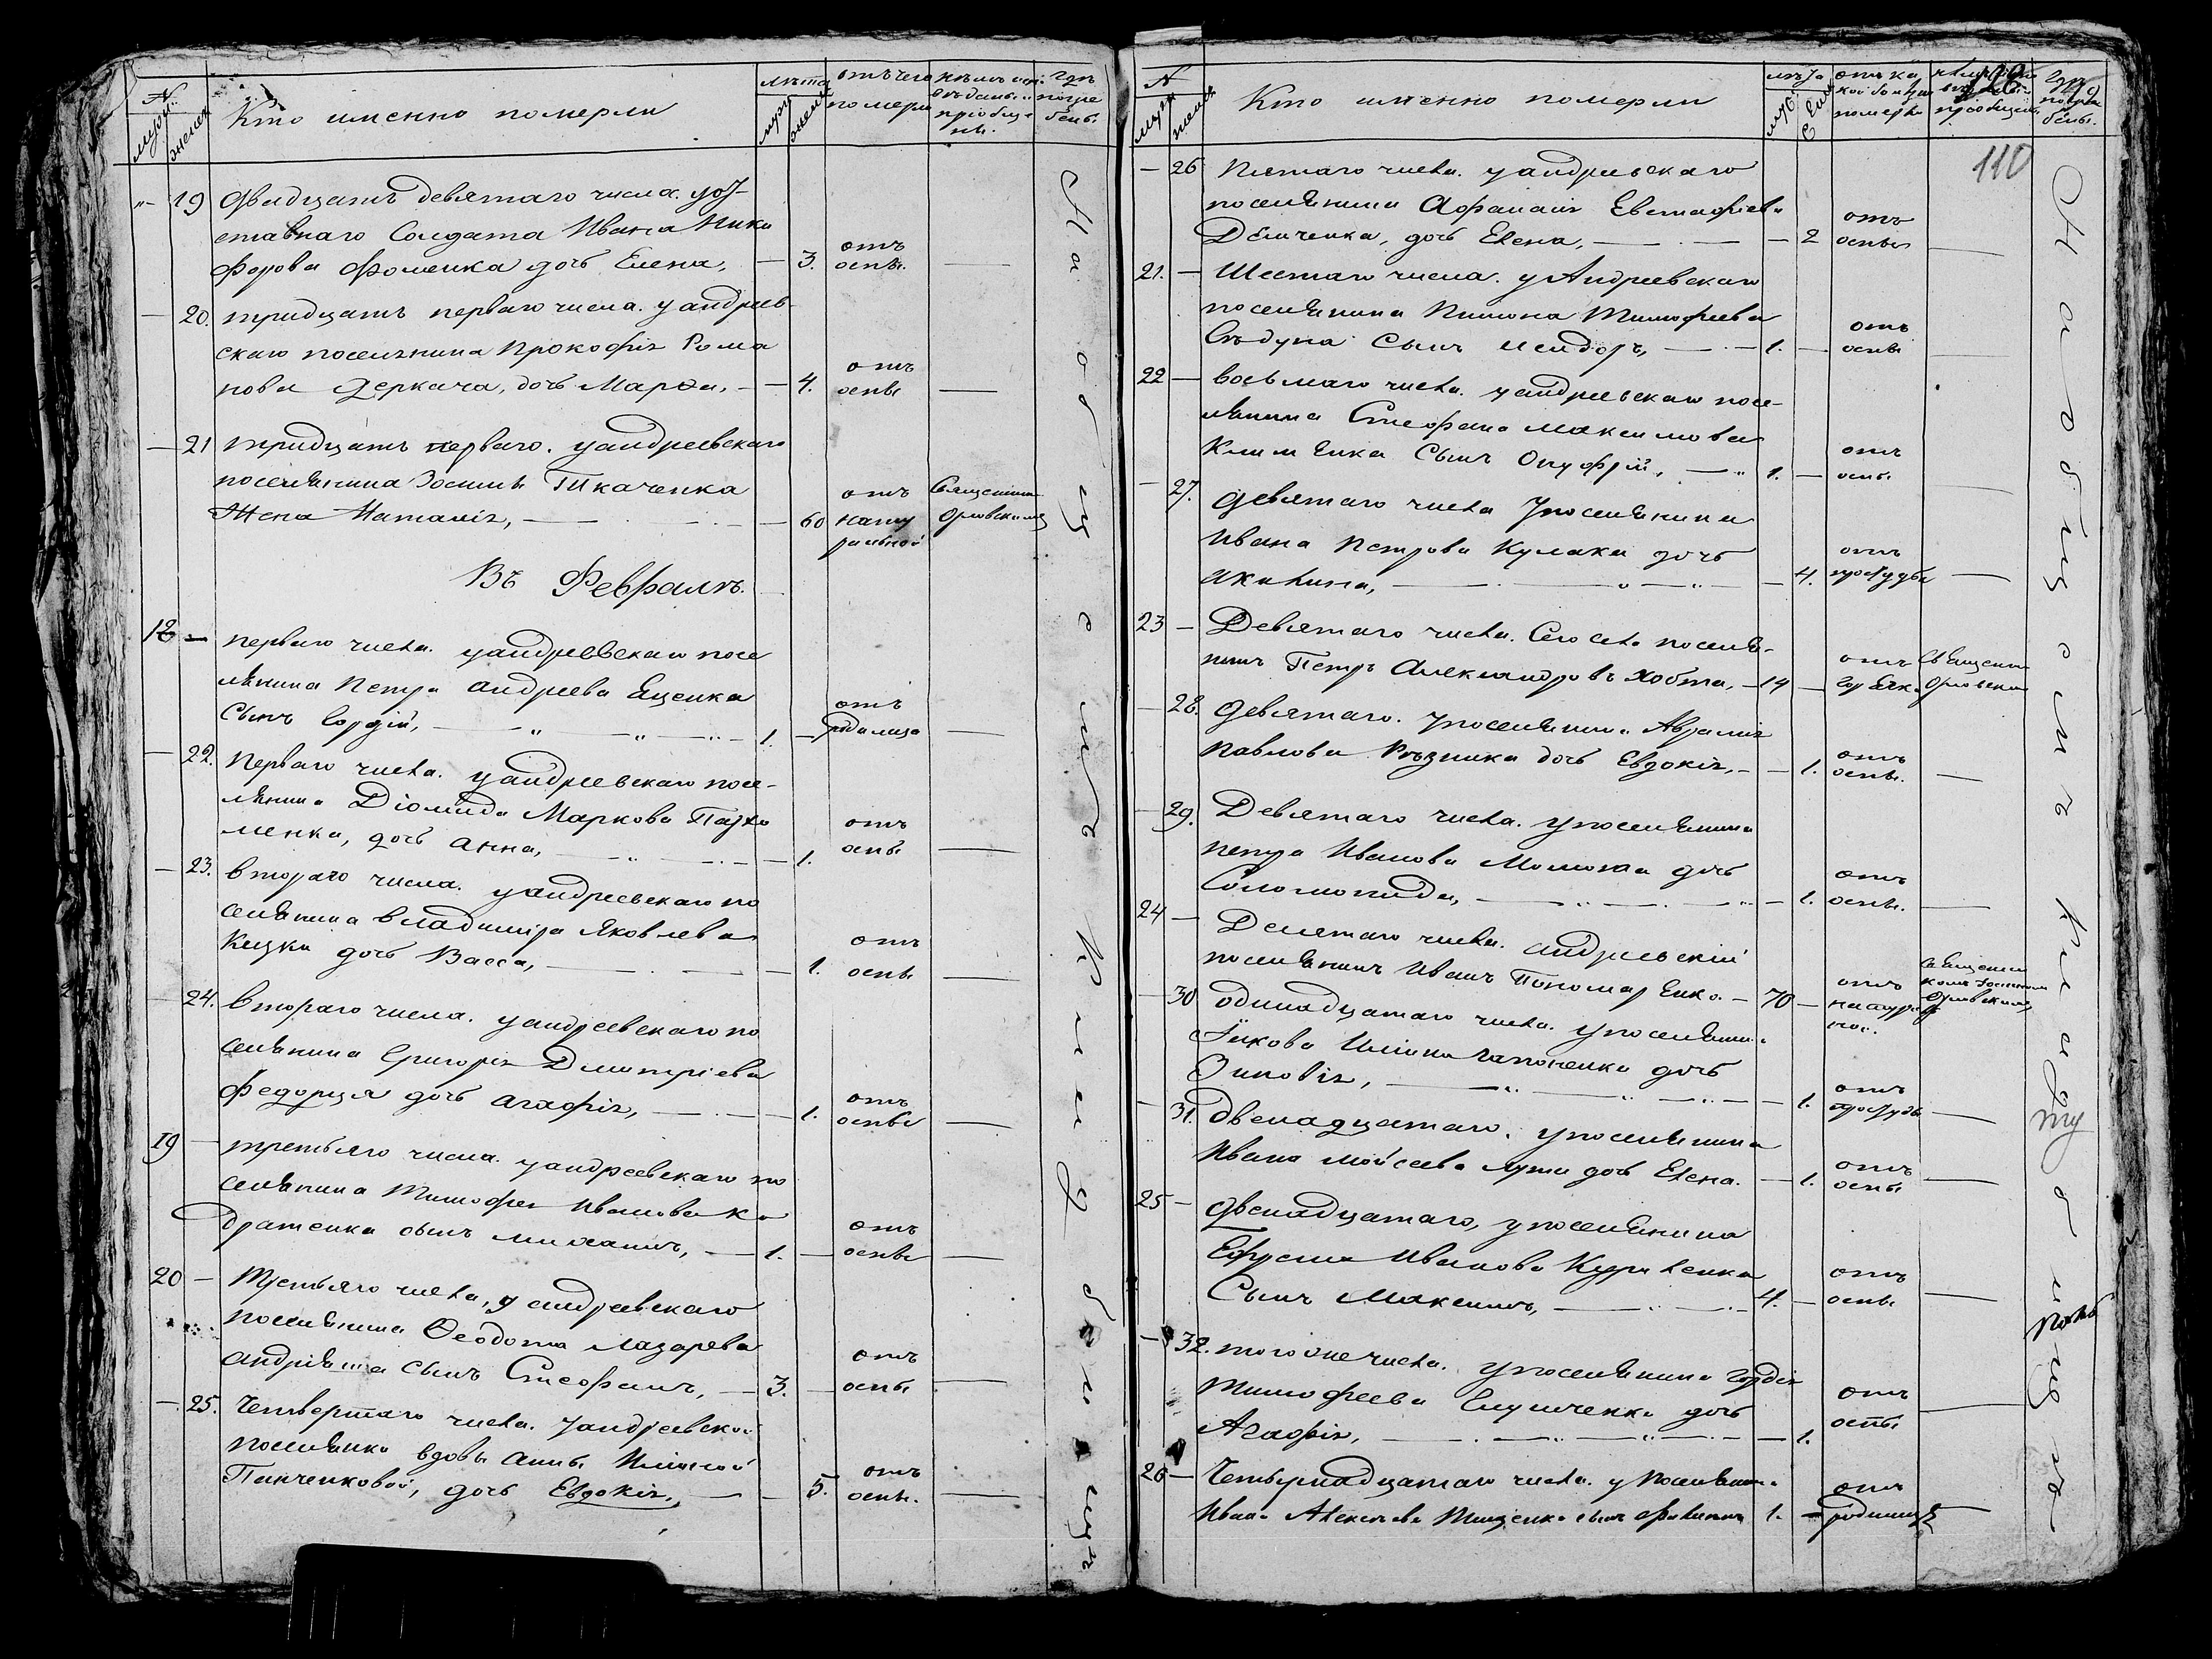 N
мужск женск
Кто именно померли
лѣта
муж женск
отъ чего померли
кѣмъ исповѣданы и пріобщены
гдѣ погребены
19 двадцать девятаго числа. у от-
ставнаго Солдата Ивана Ники
форова Фоменка дочь Елена, — 3. отъ оспы. —
20. тридцать перваго числа. у андреев-
скаго поселянина Прокофія Рома
нова Деркача, дочь Марѳа, — 4. отъ оспы —
21 тридцать перваго. у андреевскаго
поселянина Зосимы Ткаченка
Жена Наталія, — 60 отъ натуральной Священник Орловскимъ
Въ Февралѣ.
18 — перваго числа. у андреевскаго посе
лянина Петра андреева Яценка
Сынъ Сергій, — 1. — отъ родимца —
22. перваго числа. у андреевскаго посе-
лянина Діомида Маркова Пархо
менка, дочь анна, — 1. отъ оспы —
23. втораго числа. у андреевскаго по
селянина Владиміра Яковлева
Кицки дочь Васса, — 1. отъ оспы —
24. втораго числа. у андреевскаго по
селянина Григорія Дмитріева
Федорця дочь агафія, — 1. отъ оспы —
19 — третьяго числа. у андреевскаго по
селянина Тимофея Иванова Ко
дратенка сынъ михаилъ, — 1. — отъ оспы —
20 — Третьяго числа, у андреевскаго
поселянина Ѳеодота Лазарева
андріяша сынъ Стефанъ, — 3. — отъ оспы —
25. Четвертаго числа. у андреевской
поселянки вдовы анны Ильиной
Панченковой, дочь Евдокія, — 5. отъ оспы. —
На общемъ кладбищѣ
N
муж женск
Кто именно померли
лѣта
муж
отъ какой болѣзни померли
гдѣ погребены.
110
26 Пятаго числа. у андреевскаго
поселянина Афанасія Евстафіева
Демченка, дочь Елена, — 2 отъ оспы —
21. — Шестаго числа. у Андреевскаго
поселянина Пимона Тимофеева
Сѣдуна Сынъ Исидоръ, — 1. — отъ оспы —
22 — восьмаго числа. у андреевскаго посе-
лянина Стефана Максимова
Клименка Сынъ Онуфрій, — 1. — отъ оспы —
27. девятаго числа У поселянина
Ивана Петрова Кулака дочь
акилина, — 4. отъ простуды —
23 — Девятаго числа. Сего села поселя-
нинъ Петръ Александровъ Хобта, — 14 — отъ горячк. Священник Орловским
28. девятаго. у поселянина Аврамія
Павлова Рѣзника дочь Евдокія, — 1. отъ оспы. —
29. Девятаго числа. у поселянина
петра Иванова Момота дочь
Соломонида, — 1. отъ оспы. —
24 — Десятаго числа. андреевскій
поселянинъ Иванъ Пономаренко. — 70 — отъ натураль ной. Священником Орловскимъ
30 одинадцатаго числа. у поселянина
Якова Ильина Гапоненка дочь
Зиновія, — 1. отъ простуды —
31. двенадцатаго. у поселянина
Ивана Мойсеева Луты дочь Елена. — 1. отъ оспы —
25 — двенадцатаго, у поселянина
Ефрема Иванова Куриленка
Сынъ Максимъ, — 4. — отъ оспы —
32. тогоже числа. у поселянина Гордія
Тимофеева дочь
Агафія, — 1. отъ оспы —
26 — Четырнадцатаго числа. у поселянина
Ивана Алексѣева Тищенка сынъ Филиппъ 1. — отъ родимца
На общемъ кладбищѣ